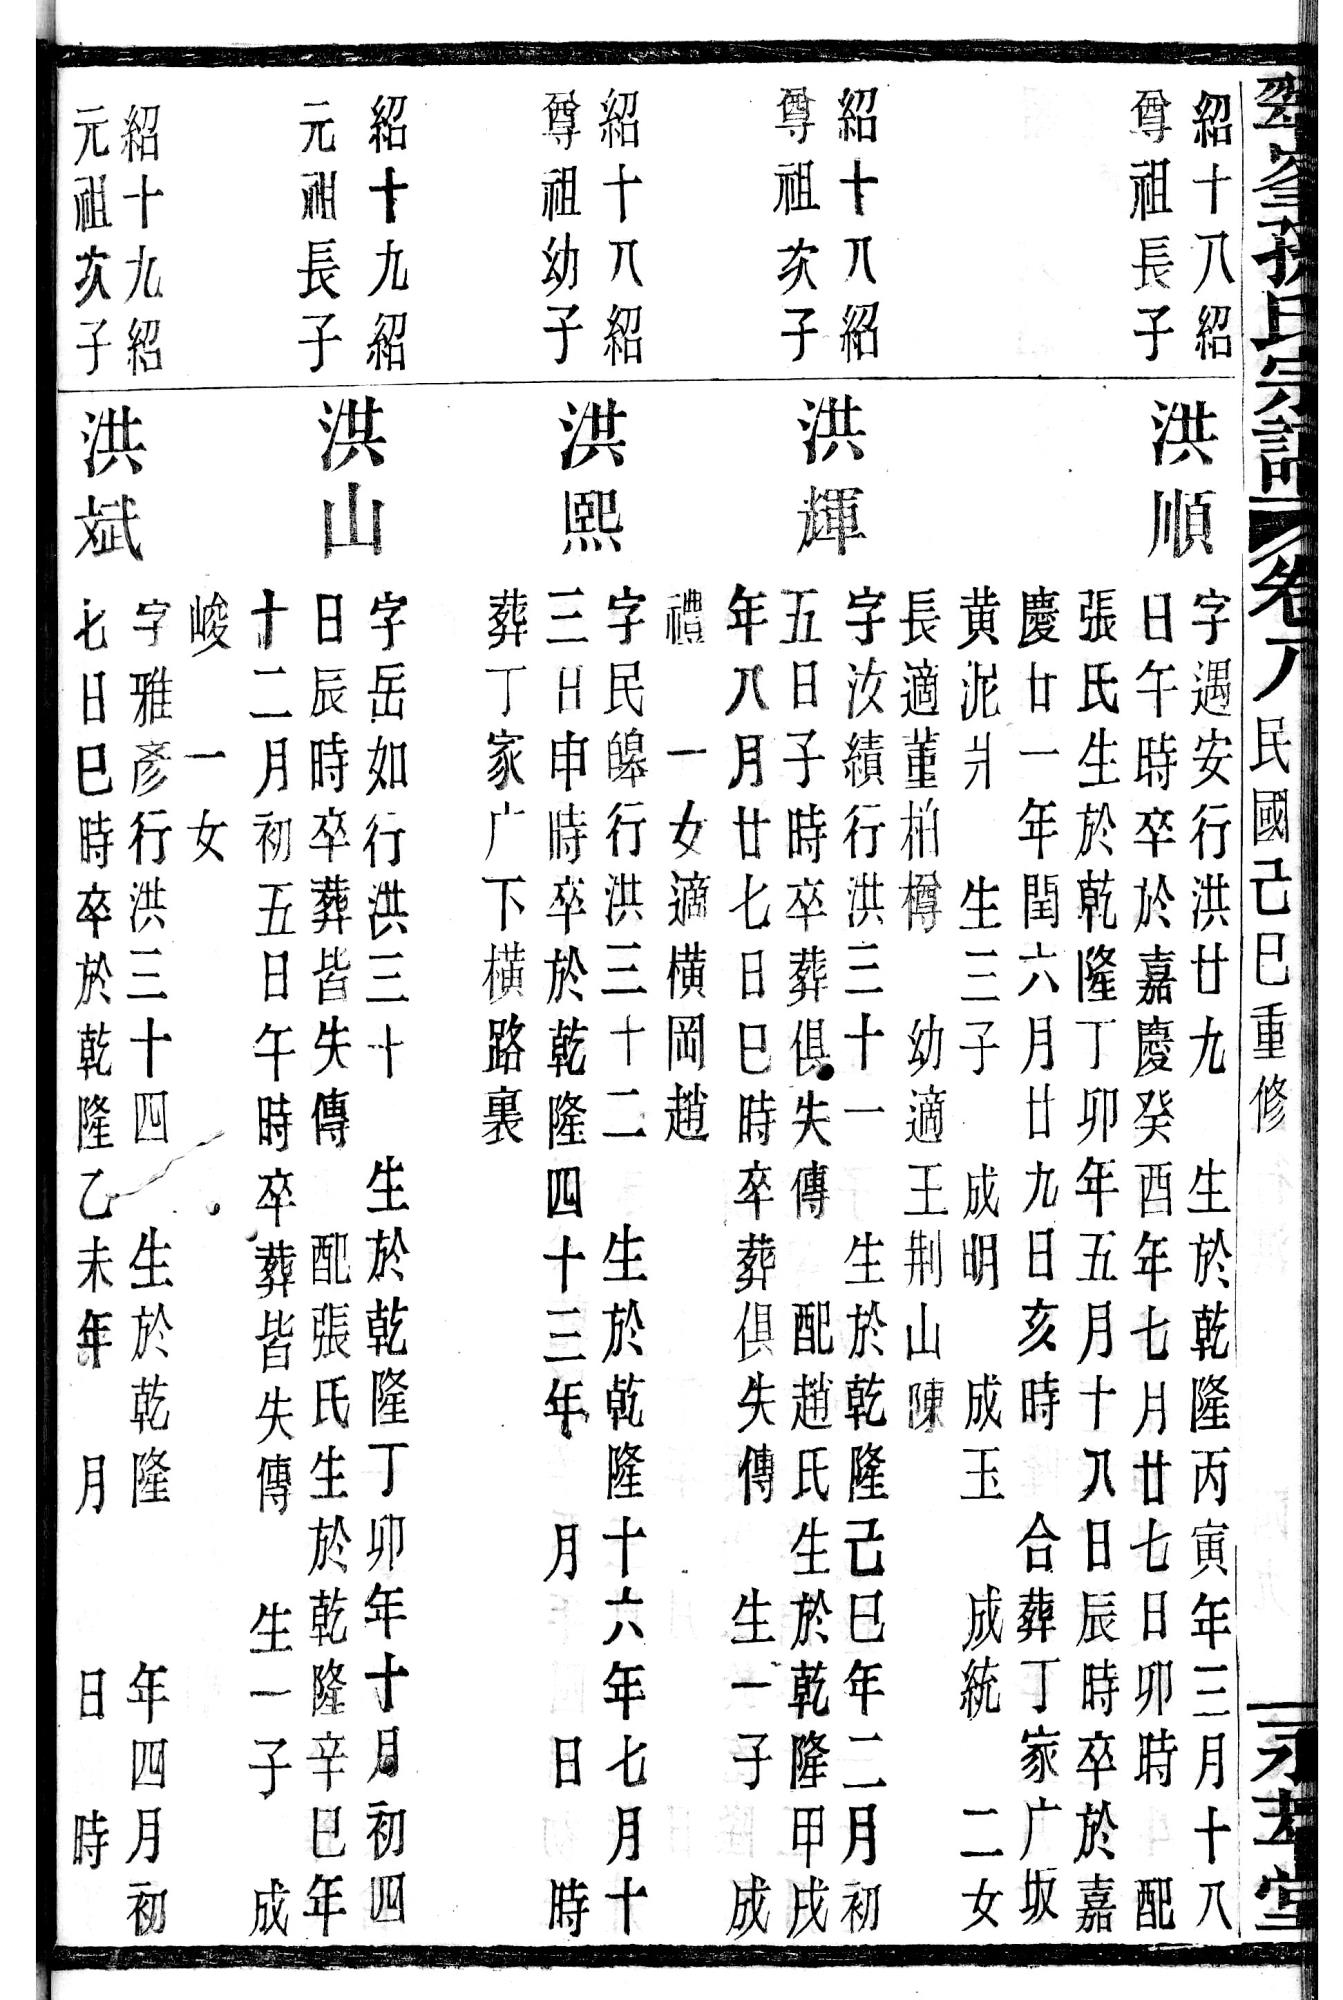 孫氏宗譜 卷八 民國己巳重修 永 堂
紹十八紹
尊祖長子
洪順
字遇安行洪廿九 生於乾隆丙寅年三月十八
日午時卒於嘉慶癸酉年七月廿七日卯時 配
張氏生於乾隆丁卯年五月十八日辰時卒於嘉
慶廿一年閏六月廿九日亥時 合葬丁家广坂
黄泥爿 生三子 成明 成玉 成統 二女
長適董柏樽 幼適王荆山陳
紹十八紹
尊祖次子
洪輝
字汝績行洪三十一 生於乾隆己巳年二月初
五日子時卒葬俱失傳 配趙氏生於乾隆甲戌
年八月廿七日巳時卒葬俱失傳 生一子 成
禮 一女適橫岡趙
紹十八紹
尊祖幼子
洪熙
字民皞行洪三十二 生於乾隆十六年七月十
三日申時卒於乾隆四十三年 月 日 時
葬丁家广下橫路裏
紹十九紹
元祖長子
洪山
字岳如行洪三十 生於乾隆丁卯年十月初四
日辰時卒葬皆失傳 配張氏生於乾隆辛巳年
十二月初五日午時卒葬皆失傳 生一子 成
峻 一女
紹十九紹
元祖次子
洪斌
字雅彥行洪三十四 生於乾隆 年四月初
七日巳時卒於乾隆乙未年 月 日 時